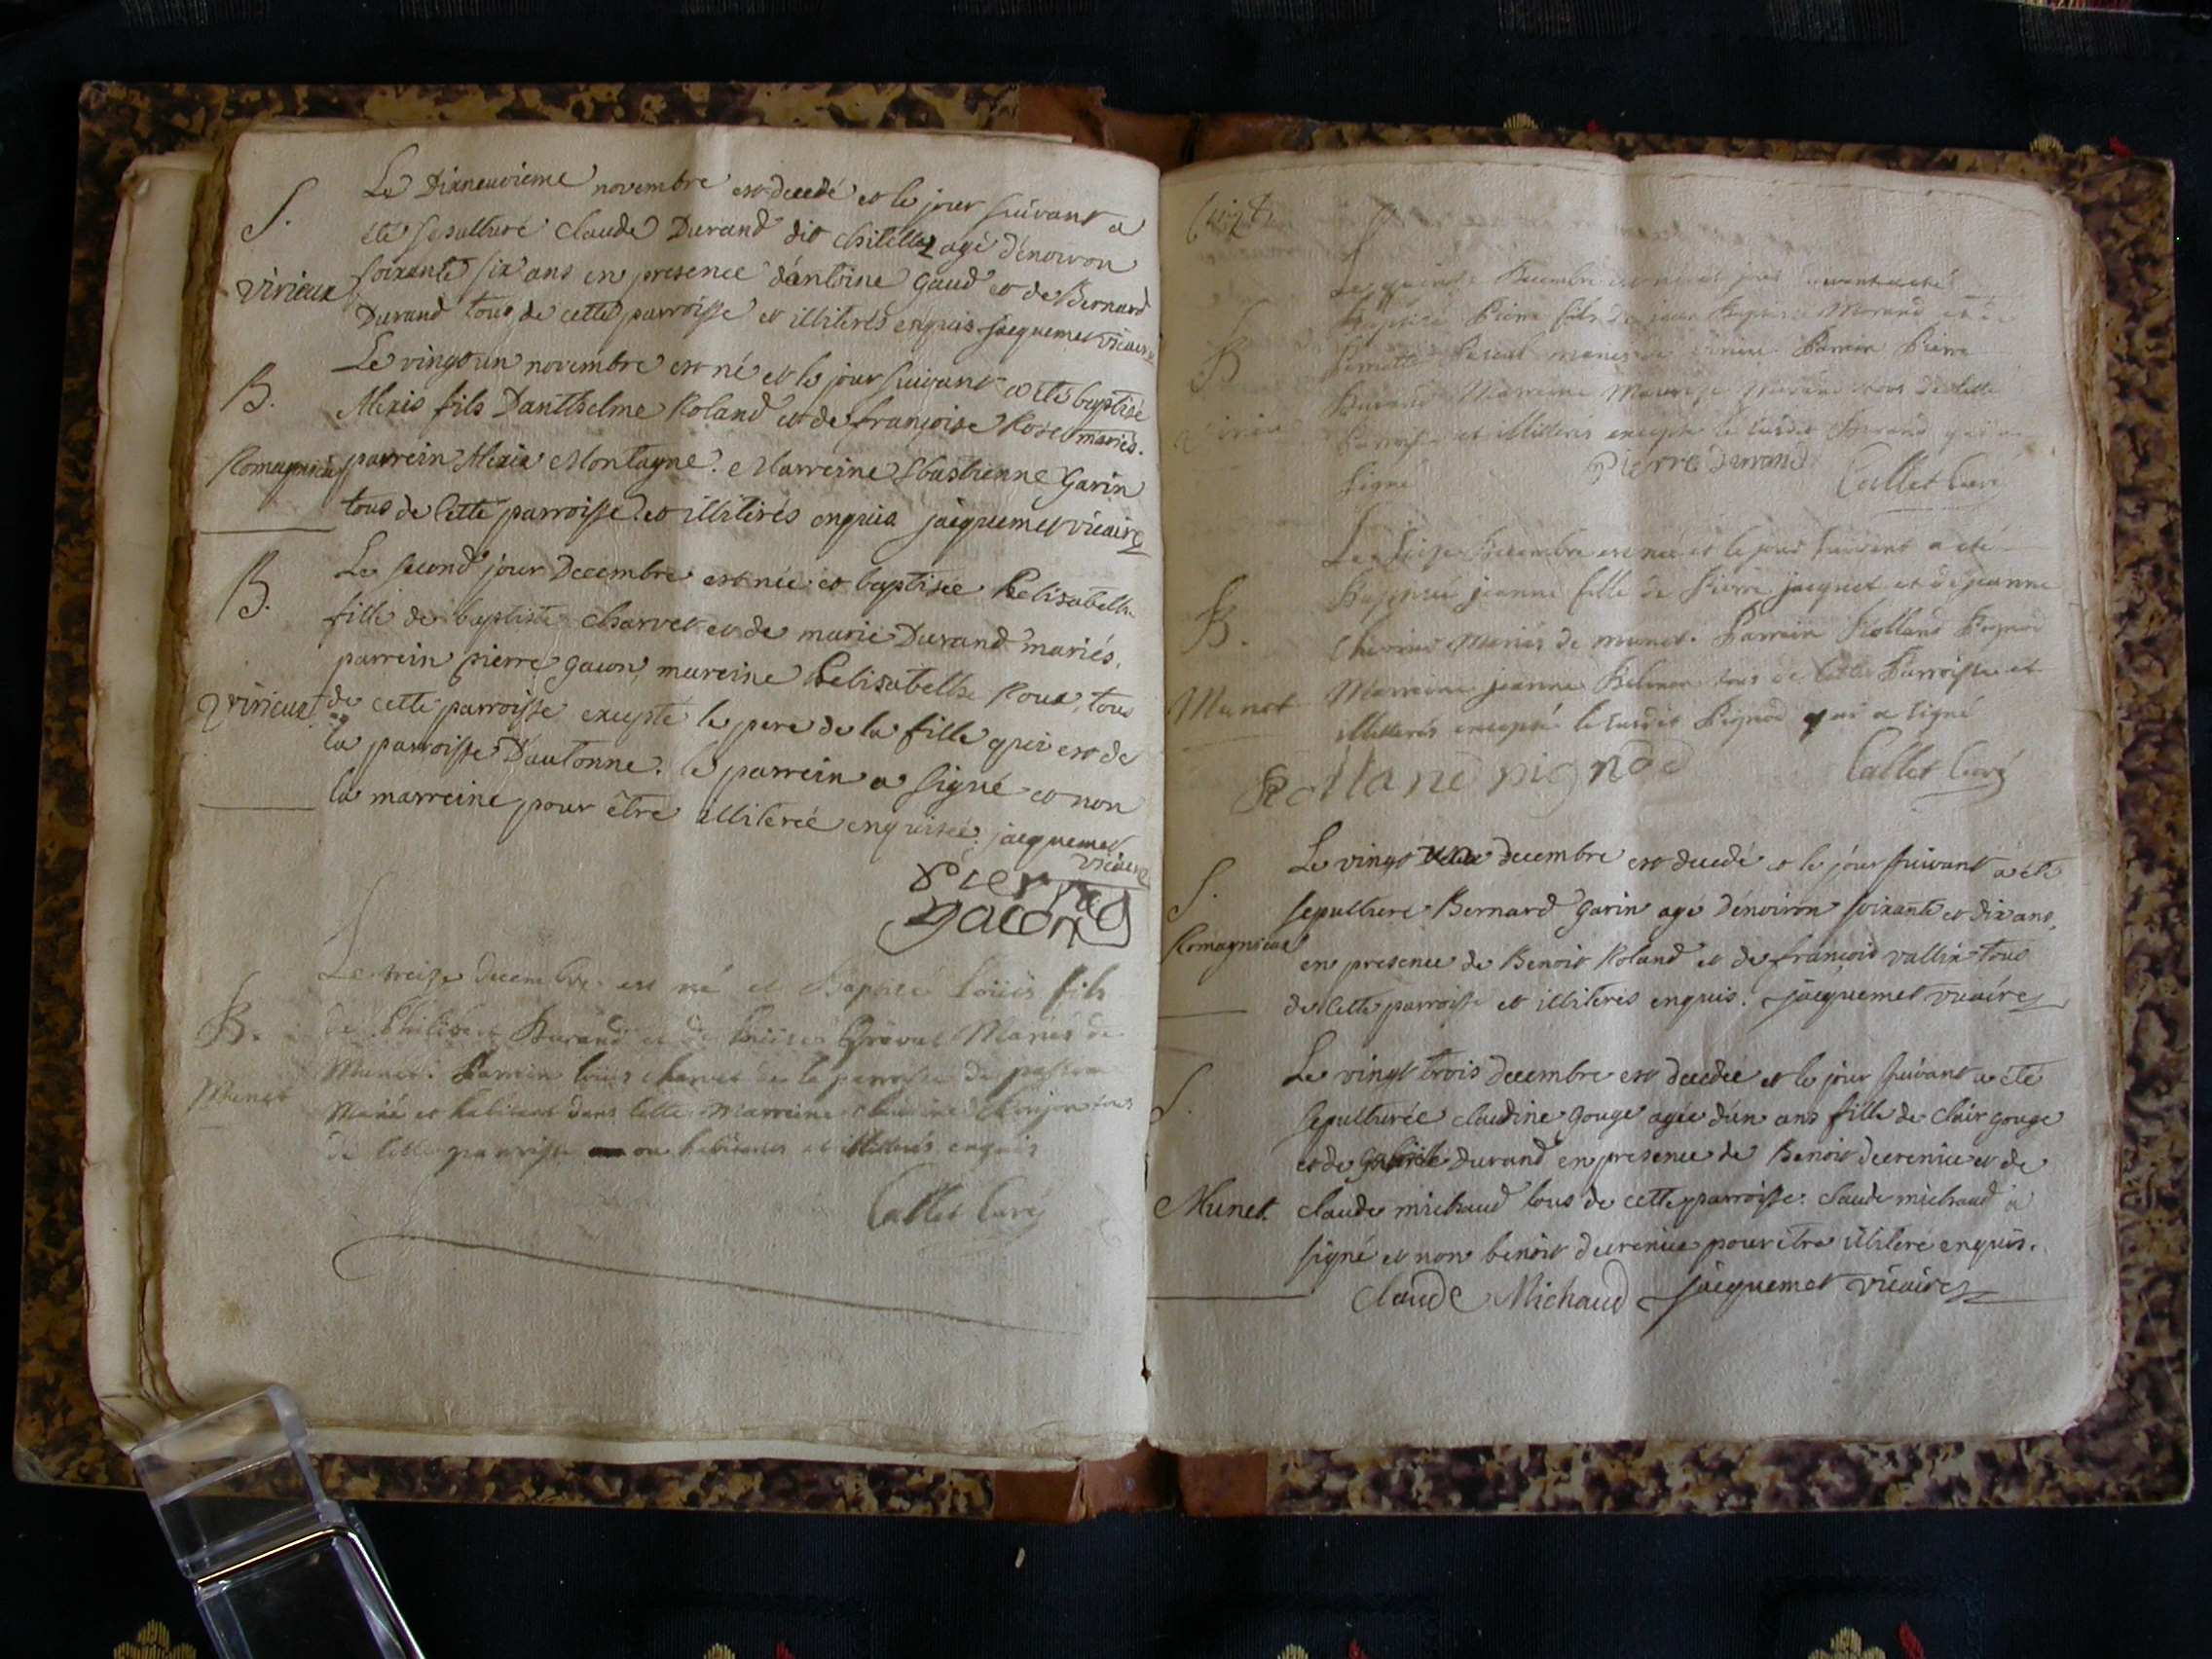 S.
Le Dixneuvieme novembre est decedé et le jour suivant a
été sepulturé claude Durand dit chilellez agé d'environ
Virieux
soixante six ans en presence d'antoine gaud et de Bernard
Durand tous de cette parroisse et illiterés enquis jacquemet vicaire
B.
Le vingt un novembre est né et le jour suivant a été baptisé
Alexis fils Danthelme Roland et de françoise Rose mariés.
Romagnieu
parrein Alexis Montagne. Marreine Sbastienne Garin
tous de cette parroisse et illitirés enquis jacquemet vicaire
B.
Le second jour Decembre est née et baptisée Helisabethe
fille de baptiste charvet et de marie Durand mariés.
parrein pierre gacon, mareine Helisabethe Roux, tous
Virieux
de cette parroisse excepté le pere de la fille qui est de
la parroisse Dautonne. le parrein a signé et non
la marreine pour être illiterée enquisée. jacquemet
vicaire
Pierre
gacon
B.
Le treize decembre est né et Baptisé Loüis fils
de Philibert Durand et de Loüise Mariés de
Munet
Munet. Parrein loüis charvet de la parroisse de
Marié et habitant dans cette Marreine tous
de cette parroisse ou habitants et illiterés enquis
Callet Curé
Le Decembre est né et le jour suivant a eté
B
Baptisé Pierre fils de jean Baptiste Morand et de
mariés de Virieu Parrein Pierre
Virieu
Durand Marreine tous de cette
Parroisse et illiterés excepté le susdit Durand qui a
signé
Pierre Durand
Callet Curé
Le seize Decembre est née et le jour suivant a eté
Baptisée jeanne fille de Pierre jacquet et de jeanne
B.
Mariés de munet. Parrein Rolland Pignod
Munet
Marreine jeanne tous de cette Parroisse et
illitterés excepté le susdit Pignod qui a signé
Rolland pignod
Callet Curé
S.
Le vingt decembre est decedé et le jour suivant a été
sepulturé Bernard Garin agé d'environ soixante et dix ans,
Romagnieu
en presence de Benoit Roland et de françois vallin tous
de cette parroisse et illiterés enquis. jacquemet vicaire
S.
Le vingt trois decembre est decedée et le jour suivant a été
sepulturée claudine gouge agée d'un ans fille de clair gouge
et de Durand en presence de Benoit decrenice et de
Munet.
claude michaud tous de cette parroisse. claude michaud a
signé et non benoit decrenice pour être illiteré enquis.
claude Michaud jacquemet vicaire